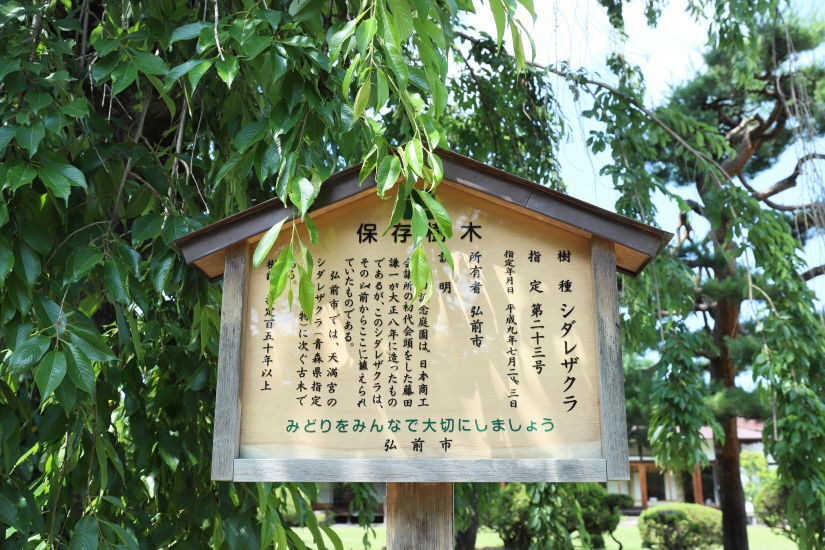 保存樹木
樹種 シダレザクラ
指定 第二十三号
指定年月日 平成九年七月二十三日
所有者 弘前市
説明
念庭園は、日本商工
会議所の初代会頭をした藤田
謙一が大正八年に造ったもの
であるが、このシダレザクラは、
その以前からここに植えられ
ていたものである。
弘前市では、天満宮の
シダレザクラ(青森県指定
物)に次ぐ古木で
定百五十年以上
みどりをみんなで大切にしましょう
弘前市